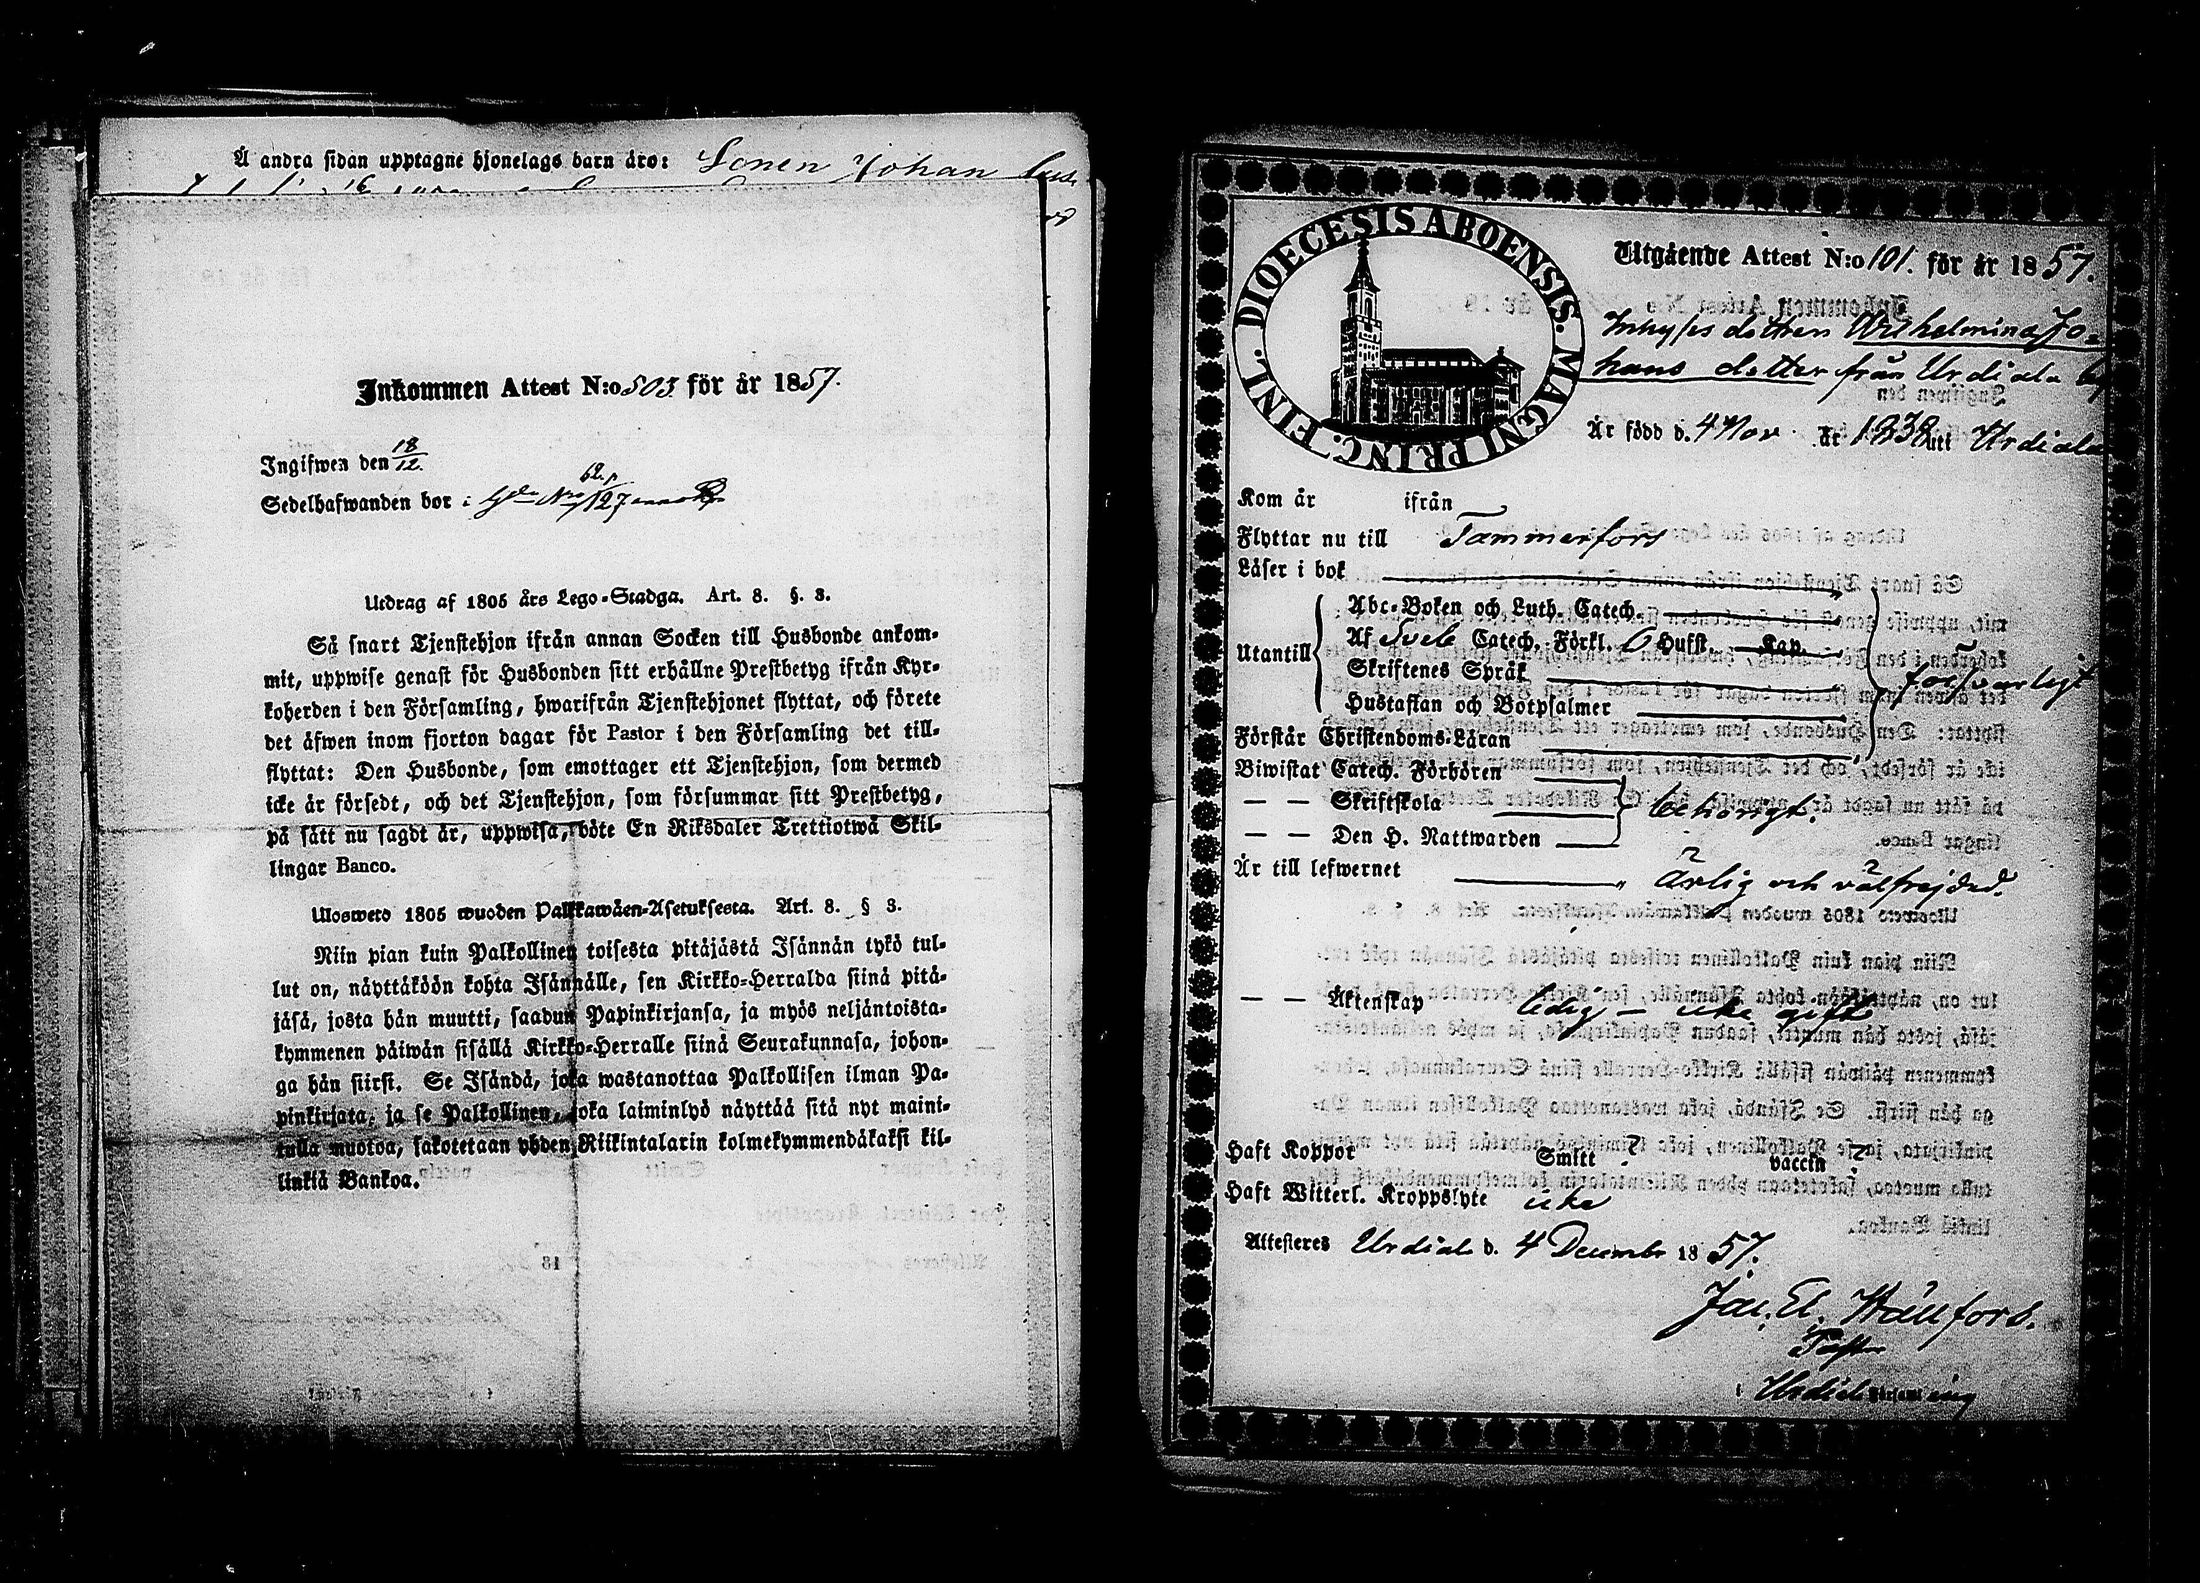 Å andra sidan upptagne hjonelags barn äro: Sonen Johan
Inkommen Attest N:o 503 för år 1857.
Ingifwen den 18/12.
Sedelhafwanden bor i Gdn No 127
62.
Utdrag af 1805 års Lego-Stadga. Art. 8. §. 3.
Så snart Tjenstehjon ifrån annan Socken till Husbonde ankom-
mit, uppwise genast för Husbonden sitt erhållne Prestbetyg ifrån Kyr-
koherden i den Församling, hwarifrån Tjenstehjonet flyttat, och förete
det äfwen inom fjorton dagar för Pastor i den Församling det till-
flyttat: Den Husbonde, som emottager ett Tjenstehjon, som dermed
icke är försedt, och det Tjenstehjon, som försummar sitt Prestbetyg,
på sätt nu sagdt är, uppwisa, böte En Riksdaler Trettiotwå Skil-
lingar Banco.
Ulosweto 1805 wuoden Palkkawäen-Asetuksesta. Art. 8. § 3.
Niin pian kuin Palkollinen toisesta pitäjästä Isännän tykö tul-
lut on, näyttäköön kohta Isännälle, sen Kirkko-Herralda siinä pitä-
jäsä, josta hän muutti, saadun Papinkirjansa, ja myös neljäntoista-
kymmenen päiwän sisällä Kirkko-Herralle siinä Seurakunnasa, johon-
ga hän siirsi. Se Isändä, joka wastanottaa Palkollisen ilman Pa-
pinkirjata, ja se Palkollinen, joka laiminlyö näyttää sitä nyt maini-
tulla muotoa, sakotetaan yhden Riikintalarin kolmekymmendäkaksi kil-
linkiä Bankoa.
18
DIOECESIS ABOENSIS. MAGNI PRINC. FINL.
Utgående Attest N:o 101. för år 1857.
Inhyses dottren Wilhelmina Jo-
hans dotter från Urdiala by
Är född d. 4 Nov år 1838 uti Urdiala
Kom år ifrån
Flyttar nu till Tammerfors
Läser i bok
Utantill
Abc-Boken och Luth. Catech.
Af Sveb Catech. Förkl. 6 Hufst. Kap.
Skriftenes Språk
Hustaflan och Botpsalmer
försvarligt
Förstår Christendoms-Läran
Biwistat Catech. Förhören
— — Skriftskola
— — Den H. Nattwarden
behörigt.
Är till lefwernet ärlig och välfrejdad.
— — Äktenskap ledig — icke gift
Haft Koppor Smitt ? vaccin ?
Haft Witterl. Kroppslyte icke
Attesteras Urdiala d. 4 Decembr 1857.
Jac. El. Hällfors.
Past
i Urdiala Församling